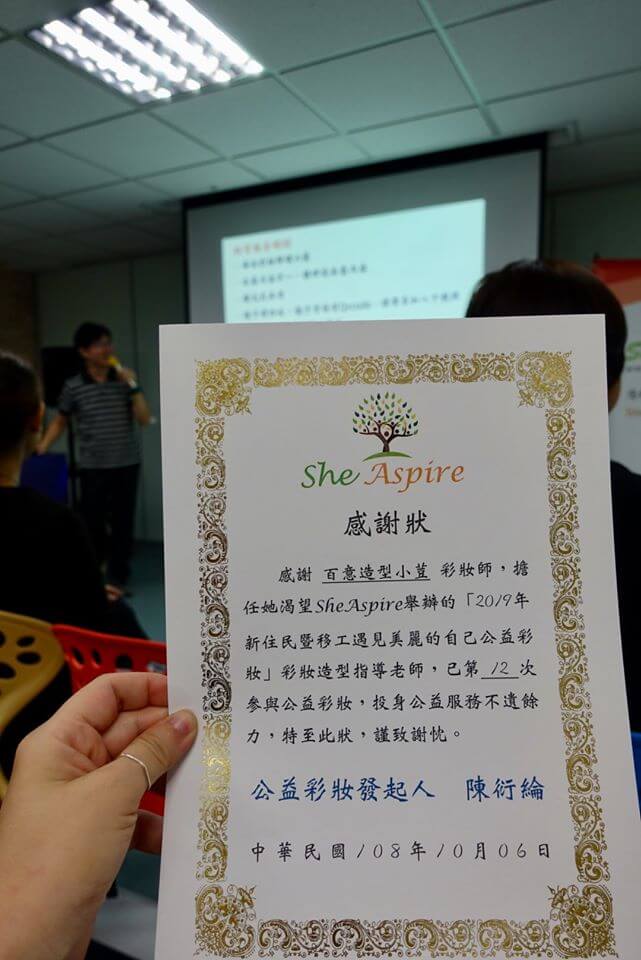 She Aspire
感謝狀
感謝 百意造型小荳 彩妝師，擔
任她渴望SheAspire舉辦的「2019年
新住民暨移工遇見美麗的自己公益彩
妝」彩妝造型指導老師，已第 12 次
參與公益彩妝，投身公益服務不遺餘
力，特至此狀，謹致謝忱。
公益彩妝發起人 陳衍綸
中華民國108年10月06日